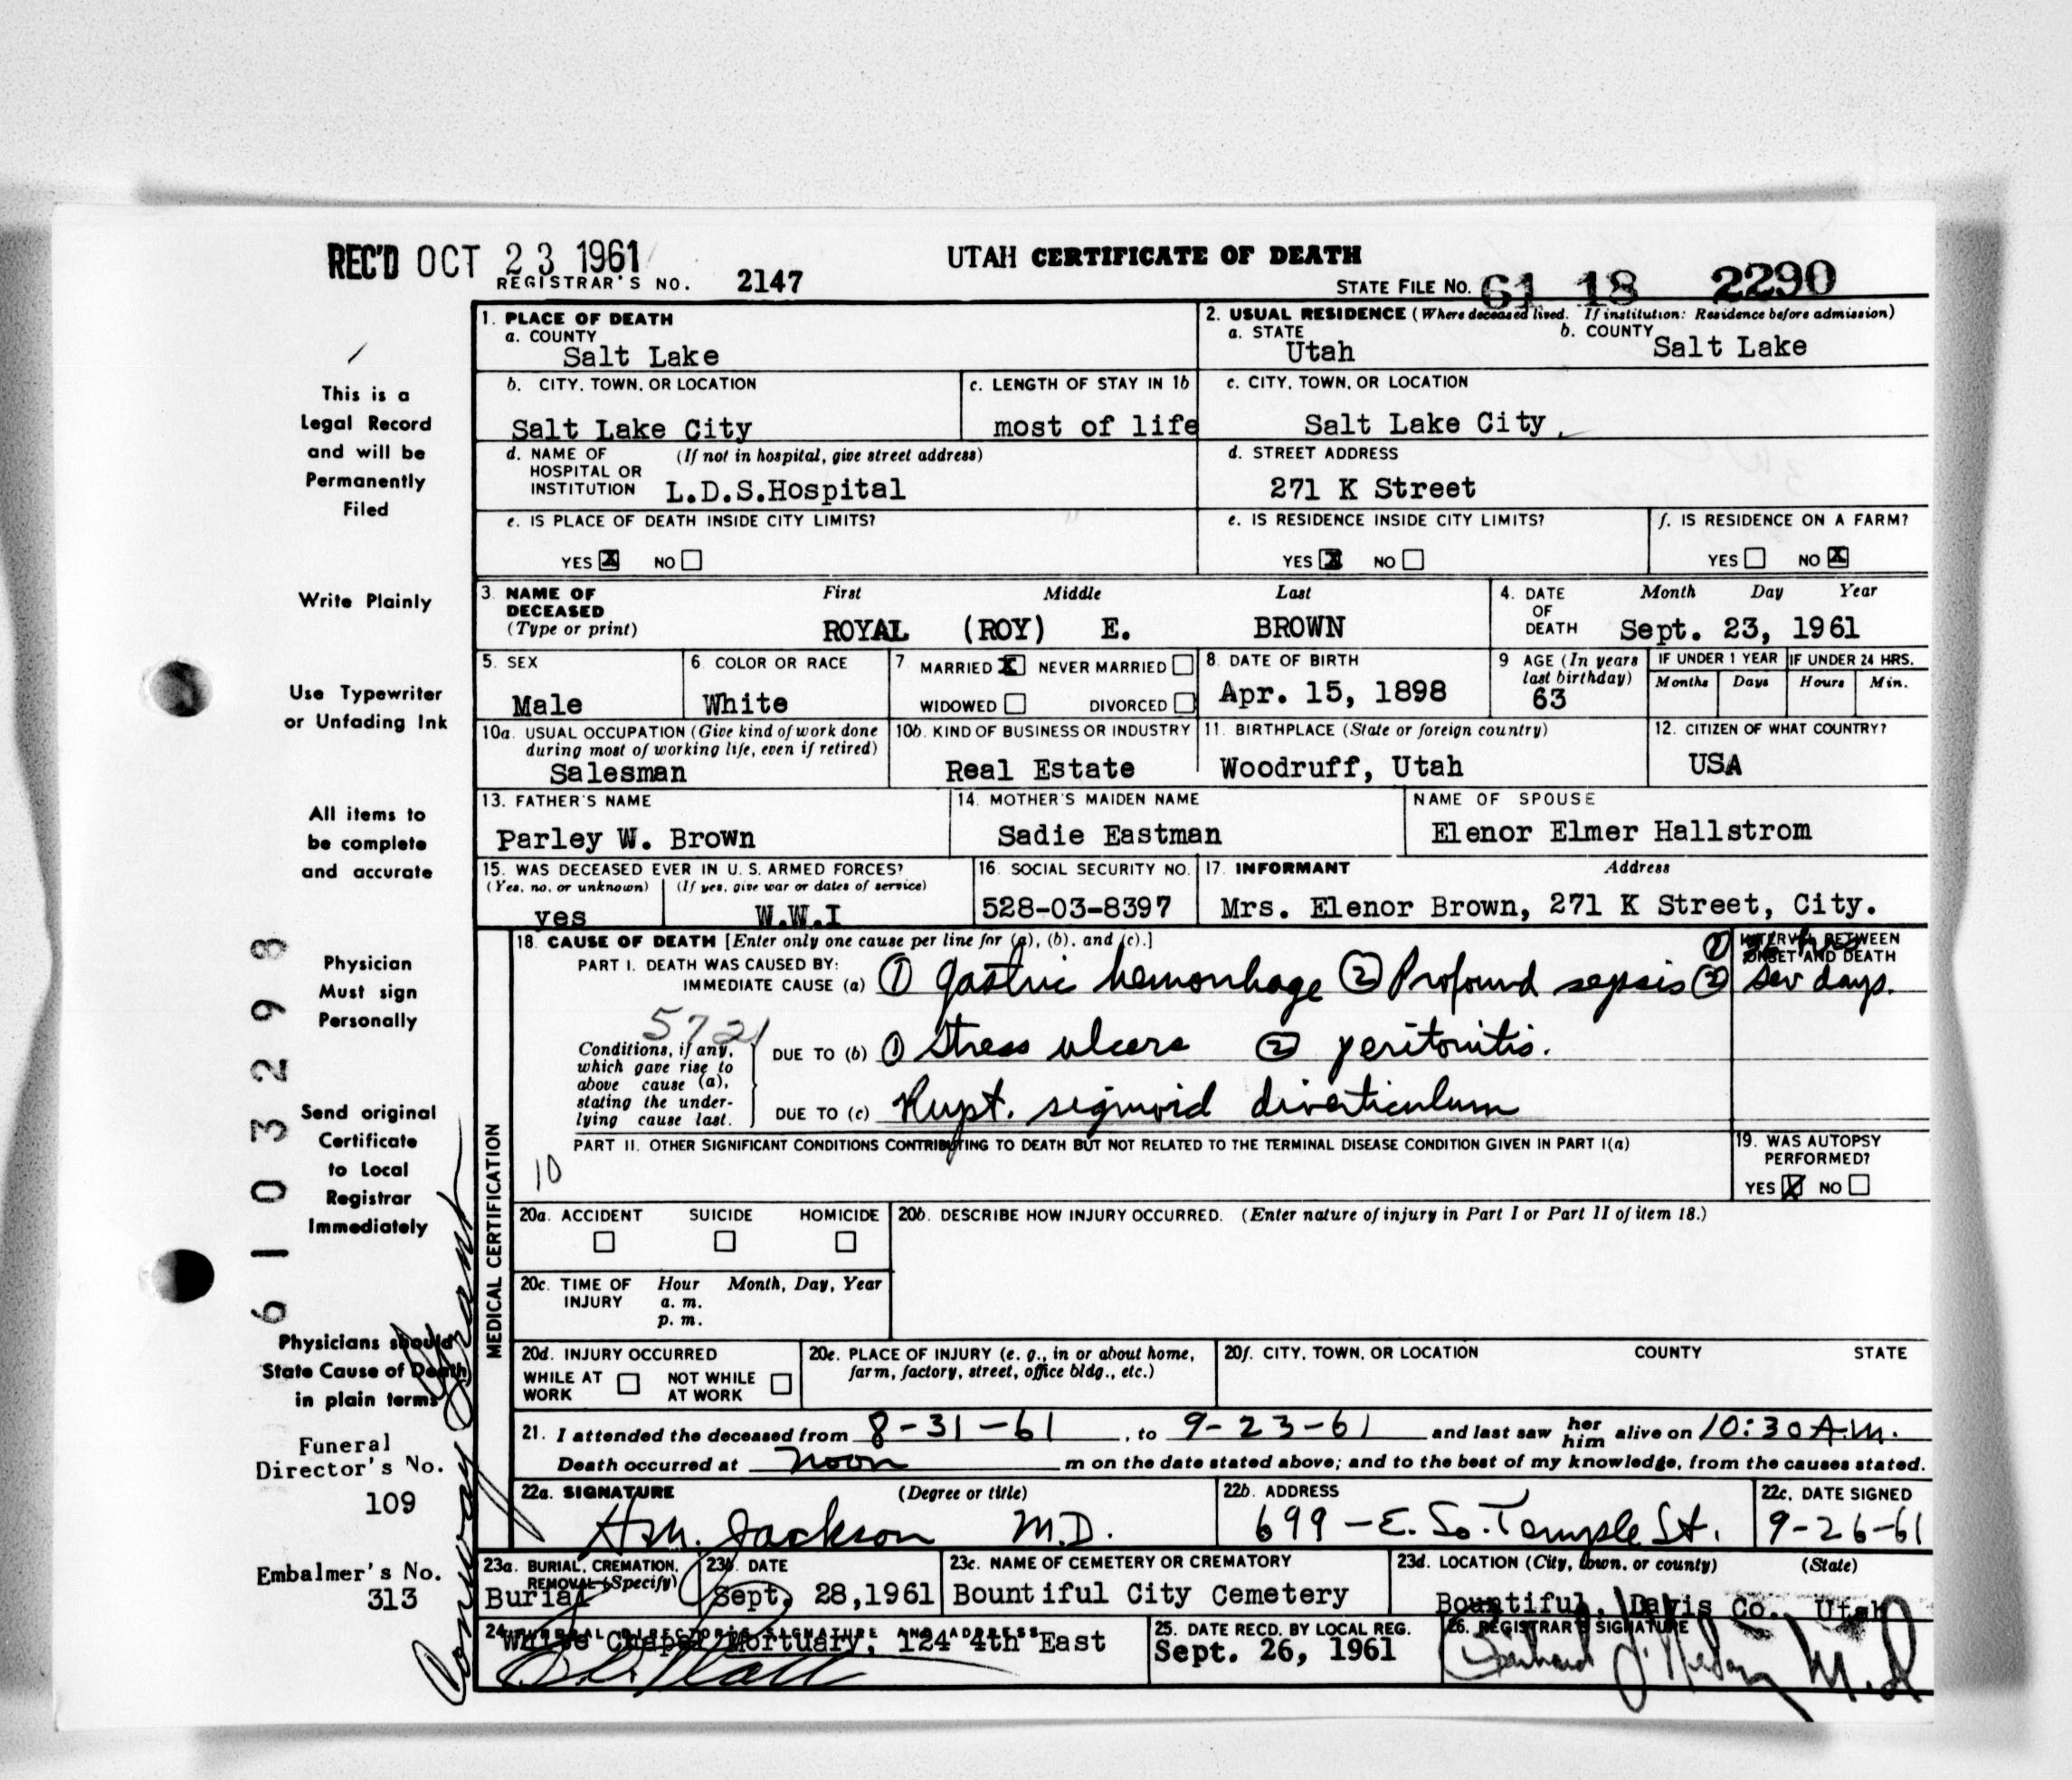 REC'D OCT 23 1961
UTAH CERTIFICATE OF DEATH
REGISTRAR'S NO. 2147
STATE FILE NO. 61 18 2290
This is a
Legal Record
and will be
Permanently
Filed
Write Plainly
Use Typewriter
or Unfading Ink
All items to
be complete
and accurate
Physician
Must sign
Personally
Send original
Certificate
to Local
Registrar
Immediately
Physicians should
State Cause of Death
in plain terms
Funeral
Director's No.
109
Embalmer's No.
313
61032 9 8
1. PLACE OF DEATH
a. COUNTY
Salt Lake
2. USUAL RESIDENCE (Where deceased lived. If institution: Residence before admission)
a. STATE Utah b. COUNTY Salt Lake
b. CITY, TOWN, OR LOCATION
Salt Lake City
c. LENGTH OF STAY IN 1b
most of life
c. CITY, TOWN, OR LOCATION
Salt Lake City
d. NAME OF (If not in hospital, give street address)
HOSPITAL OR
INSTITUTION L.D.S.Hospital
d. STREET ADDRESS
271 K Street
e. IS PLACE OF DEATH INSIDE CITY LIMITS?
YES X NO
e. IS RESIDENCE INSIDE CITY LIMITS?
YES X NO
f. IS RESIDENCE ON A FARM?
YES NO X
3. NAME OF First Middle Last
DECEASED
(Type or print) ROYAL (ROY) E. BROWN
4. DATE Month Day Year
OF
DEATH Sept. 23, 1961
5. SEX
Male
6. COLOR OR RACE
White
7. MARRIED X NEVER MARRIED
WIDOWED DIVORCED
8. DATE OF BIRTH
Apr. 15, 1898
9 AGE (In years
last birthday)
63
IF UNDER 1 YEAR IF UNDER 24 HRS.
Months Days Hours Min.
10a. USUAL OCCUPATION (Give kind of work done
during most of working life, even if retired)
Salesman
10b. KIND OF BUSINESS OR INDUSTRY
Real Estate
11. BIRTHPLACE (State or foreign country)
Woodruff, Utah
12. CITIZEN OF WHAT COUNTRY?
USA
13. FATHER'S NAME
Parley W. Brown
14. MOTHER'S MAIDEN NAME
Sadie Eastman
NAME OF SPOUSE
Elenor Elmer Hallstrom
15. WAS DECEASED EVER IN U. S. ARMED FORCES?
(Yes, no, or unknown) (If yes, give war or dates of service)
yes W.W.I
16. SOCIAL SECURITY NO.
528-03-8397
17. INFORMANT Address
Mrs. Elenor Brown, 271 K Street, City.
MEDICAL CERTIFICATION
18. CAUSE OF DEATH [Enter only one cause per line for (a), (b), and (c).]
INTERVAL BETWEEN
ONSET AND DEATH
PART I. DEATH WAS CAUSED BY:
IMMEDIATE CAUSE (a) ① gastric hemorrhage ② Profound sepsis ② sev days.
5721
Conditions, if any,
which gave rise to
above cause (a),
stating the under-
lying cause last.
DUE TO (b) ① Stress ulcers ② peritonitis.
DUE TO (c) Rupt. sigmoid diverticulum
PART II. OTHER SIGNIFICANT CONDITIONS CONTRIBUTING TO DEATH BUT NOT RELATED TO THE TERMINAL DISEASE CONDITION GIVEN IN PART I(a)
10
19. WAS AUTOPSY
PERFORMED?
YES X NO
20a. ACCIDENT SUICIDE HOMICIDE
20b. DESCRIBE HOW INJURY OCCURRED. (Enter nature of injury in Part I or Part II of item 18.)
20c. TIME OF Hour Month, Day, Year
INJURY a. m.
p. m.
20d. INJURY OCCURRED
WHILE AT WORK NOT WHILE AT WORK
20e. PLACE OF INJURY (e. g., in or about home,
farm, factory, street, office bldg., etc.)
20f. CITY, TOWN, OR LOCATION COUNTY STATE
21. I attended the deceased from 8-31-61, to 9-23-61 and last saw her him alive on 10:30 A.M.
Death occurred at noon m on the date stated above; and to the best of my knowledge, from the causes stated.
22a. SIGNATURE (Degree or title)
H.M. Jackson M.D.
22b. ADDRESS
699 - E. So. Temple St.
22c. DATE SIGNED
9-26-61
23a. BURIAL, CREMATION,
REMOVAL (Specify)
Burial
23b. DATE
Sept. 28,1961
23c. NAME OF CEMETERY OR CREMATORY
Bountiful City Cemetery
23d. LOCATION (City, town, or county) (State)
Bountiful, Davis Co. Utah
24. FUNERAL DIRECTOR'S SIGNATURE AND ADDRESS
White Chapel Mortuary, 124 4th East
25. DATE RECD. BY LOCAL REG.
Sept. 26, 1961
26. REGISTRAR'S SIGNATURE
M.D